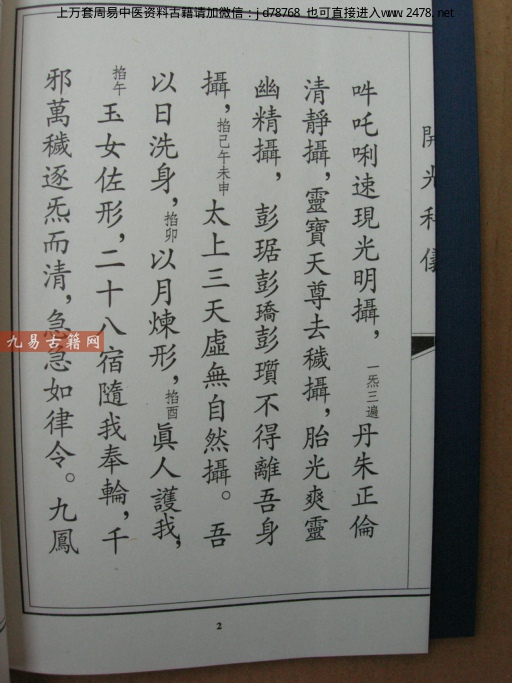 上万套周易中医资料古籍请加微信：jd78768 也可直接进入www.2478.net
開光科儀
吽吒唎速現光明攝，一炁三遍丹朱正倫
清靜攝，靈寶天尊去穢攝，胎光爽靈
幽精攝，彭琚彭瓆彭𤩝不得離吾身
攝，掐己午未申太上三天虛無自然攝。吾
以日洗身，掐卯以月煉形，掐酉眞人護我，
掐午玉女佐形，二十八宿隨我奉輪，千
邪萬穢逐炁而清，急急如律令。九鳳
九易古籍网
2